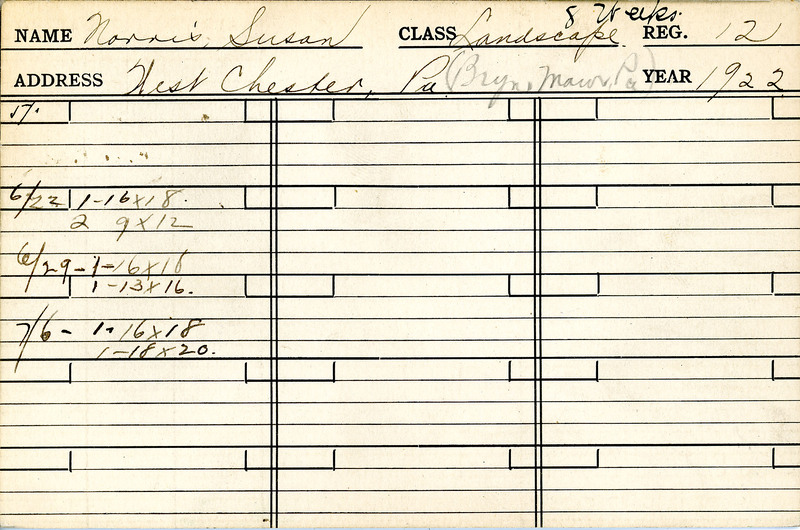 8 Weeks.
NAME Norris, Susan CLASS Landscape. REG. 12
ADDRESS West Chester, Pa (Bryn Mawr, Pa) YEAR 1922
6/22 1-16x18.
2 9x12
6/29-1-16x18
1-13x16.
7/6- 1-16x18
1-18x20.